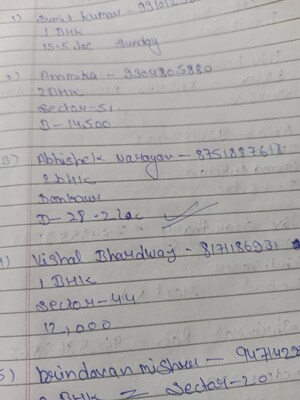 1) Sumit Kumar - 99101
1 BHK
15.5 lac Sunday
2) Anamika - 9304805880
2 BHK
Sector-51
D - 14,500
3) Abhishek Narayan - 875188761
2 BHK
D - 28 - 2 lac
4) Vishal Bhardwaj - 817186931
1 BHK
Sector-44
12,000
5) brindavan mishra - 947142
2 BHK = Sector-20